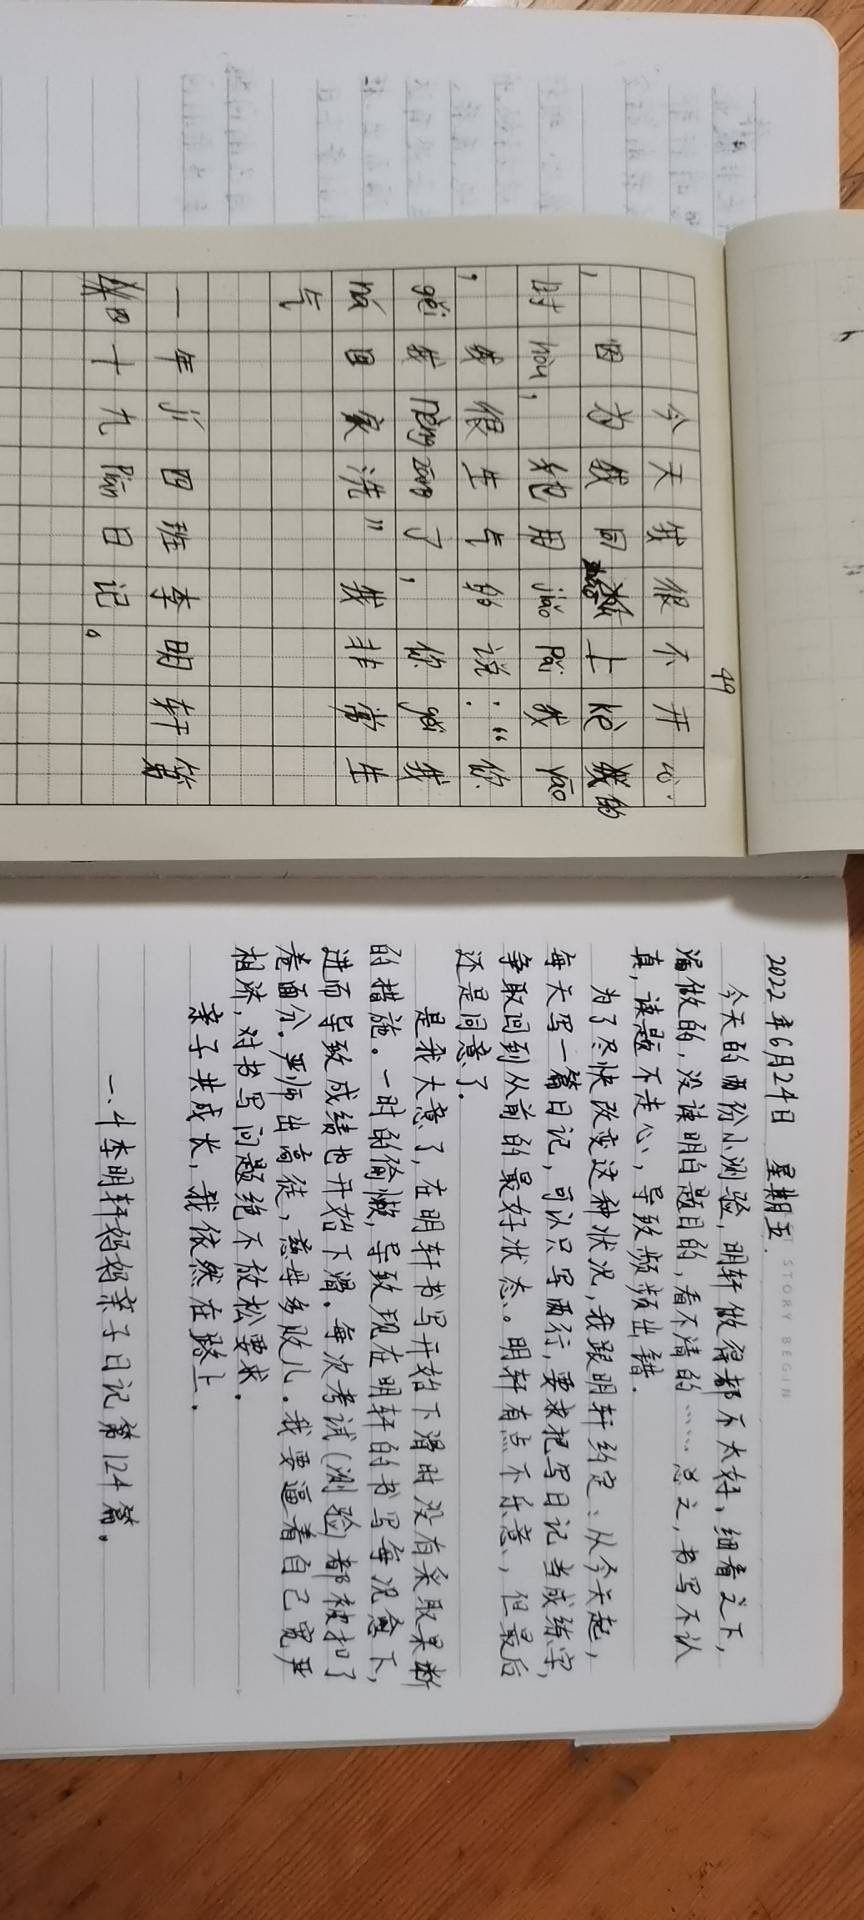 49
今天我很不开心
,因为我同上kè我的
时hòu,她用jiǎo pǎi我yāo
,我很生气的说:“你
gěi我nèng zāng了,你gěi我
ná回家洗”我非常生
气
一年jí四班李明轩第
四十九piān日记。
STORY BEGIN
2022年6月24日 星期五.
今天的两份小测验,明轩做得都不太好、细看之下,
漏做的,没读明白题目的,看不清的……总之,书写不认
真,读题不走心,导致频频出错.
为了尽快改变这种状况,我跟明轩约定:从今天起,
每天写一篇日记,可以只写两行,要求把写日记当成练字,
争取回到从前的最好状态。明轩有点不乐意,但最后
还是同意了.
是我大意了,在明轩书写开始下滑时没有采取果断
的措施。一时的偷懒,导致现在明轩的书写每况愈下,
进而导致成绩也开始下滑.每次考试(测验)都被扣了
卷面分.严师出高徒,慈母多败儿.我要逼着自己宽严
相济,对书写问题绝不放松要求.
亲子共成长,我依然在路上.
一、4李明轩妈妈亲子日记第124篇。